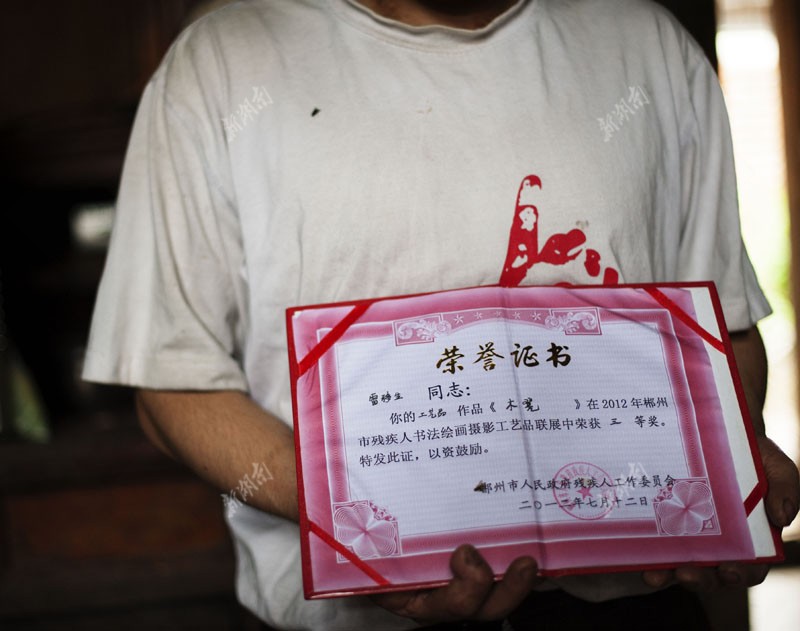 新湖南
新湖南
荣誉证书
雷 生 同志：
你的 工艺品 作品《 木凳 》在2012年郴州
市残疾人书法绘画摄影工艺品联展中荣获 三 等奖。
特发此证，以资鼓励。
郴州市人民政府残疾人工作委员会
二〇一二年七月十二日
新湖南
新湖南